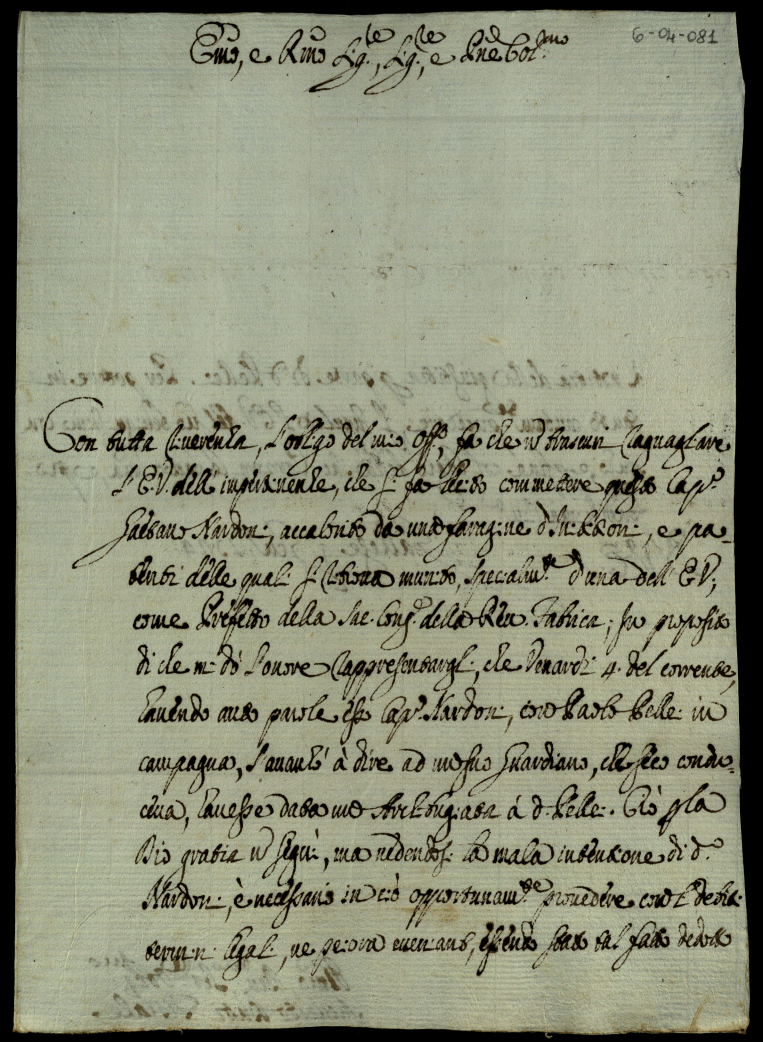 6-04-081
Emo, e Rmo Sig.re, Sig.re, e Pne Col.mo
Con tutta riverenza, l'obligo del mio Off.o, fà che nõ trascuri raguagliare
l'E.V. dell' impertinenze, che si fà lecito commettere questo Cap.o
Gaetano Nardoni, accalorito da una faragine d'Inibizioni, e pa-
tenti delle quali si ritrova munito, specialm.te d'una dell'E.V.,
come Prefetto della Sac. Cong.e della Rev. Fabrica; In proposito
di che mi dò l'onore rappresentargli, che Venardi 4. del corrente,
havendo auto parole esso Cap.o Nardoni, con Paolo Pelle: in
campagna, s'avanzò à dire ad un suo Guardiano, che seco condu-
ceva, havesse data un'Archibugiata à d.o Pelle:. Ciò p la
Dio gratia nõ seguì, ma vedendosi la mala intenzione di d.o
Nardoni, è necessario in ciò opportunam.te provedere con li debiti
termini legali, ne pejora eveniant, essendo stato tal fatto dedotto